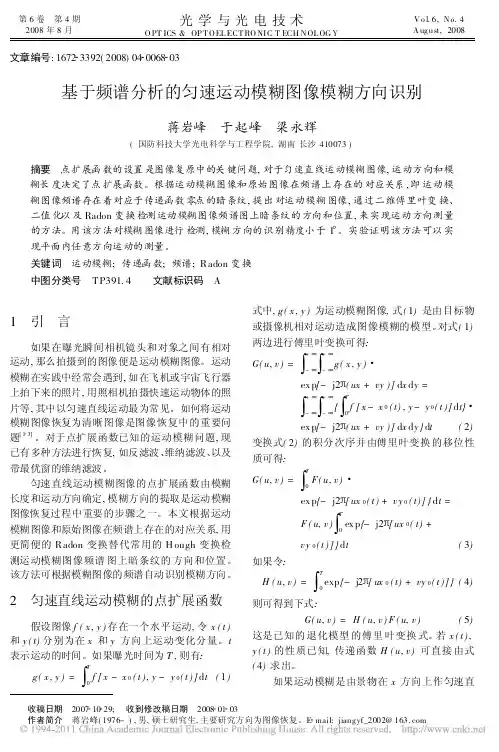 第 6 卷 第 4 期
2008 年 8 月
光 学 与 光 电 技 术
OPT ICS & OPTOELECTRONIC TECHNOLOGY
V o l. 6, N o. 4
A ugust, 2008
文章编号: 1672-3392( 2008) 04-0068-03
基于频谱分析的匀速运动模糊图像模糊方向识别
蒋岩峰 于起峰 梁永辉
( 国防科技大学光电科学与工程院, 湖南 长沙 410073 )
摘要 点扩展函数的设置是图像复原中的关键问题, 对于匀速直线运动模糊图像, 运动方向和模
糊长度决定了点扩展函数。根据运动模糊图像和原始图像在频谱上存在的对应关系, 即运动模
糊图像频谱存在着对应于传递函数零点的暗条纹, 提出对运动模糊图像, 通过二维傅里叶变换、
二值化以及 Radon 变换检测运动模糊图像频谱图上暗条纹的方向和位置, 来实现运动方向测量
的方法。用该方法对模糊图像进行检测, 模糊方向的识别精度小于 1°。实验证明该方法可以实
现平面内任意方向运动的测量。
关键词 运动模糊; 传递函数; 频谱; R adon 变换
中图分类号 T P391. 4 文献标识码 A
1 引 言
如果在曝光瞬间相机镜头和对象之间有相对
运动, 那么拍摄到的图像便是运动模糊图像。运动
模糊在实践中经常会遇到, 如在飞机或宇宙飞行器
上拍下来的照片, 用照相机拍摄快速运动物体的照
片等, 其中以匀速直线运动最为常见。如何将运动
模糊图像恢复为清晰图像是图像恢复中的重要问
题。对于点扩展函数已知的运动模糊问题, 现
已有多种方法进行恢复, 如反滤波、维纳滤波、以及
带最优窗的维纳滤波。
匀速直线运动模糊图像的点扩展函数由模糊
长度和运动方向确定, 模糊方向的提取是运动模糊
图像恢复过程中重要的步骤之一。本文根据运动
模糊图像和原始图像在频谱上存在的对应关系, 用
更简便的 R adon 变换替代常用的 H ough 变换检
测运动模糊图像频谱图上暗条纹的方向和位置。
该方法可根据模糊图像的频谱自动识别模糊方向。
2 匀速直线运动模糊的点扩展函数
假设图像 f ( x , y ) 存在一个水平运动, 令 x ( t)
和 y ( t) 分别为在 x 和 y 方向上运动变化分量。t
表示运动的时间。如果曝光时间为 T , 则有:
g( x , y ) = ∫₀ᵀ f [ x - x₀( t) , y - y₀( t) ] dt ( 1)
式中, g ( x , y ) 为运动模糊图像, 式( 1) 是由目标物
或摄像机相对运动造成图像模糊的模型。对式( 1)
两边进行傅里叶变换可得:
G( u, v ) = ∫∫ g ( x , y ) •
ex p[ - j2π( ux + vy ) ] dx dy =
∫∫ { ∫₀ᵀ f [ x - x₀( t) , y - y₀( t) ] dt} •
exp[ - j2π( ux + vy ) ] dx dy ] dt ( 2)
变换式( 2) 的积分次序并由傅里叶变换的移位性
质可得:
G( u, v ) = ∫₀ᵀ F( u, v ) •
ex p{ - j2π[ ux₀( t) + vy₀( t) ] } dt =
F ( u, v ) ∫₀ᵀ ex p{ - j2π[ ux₀( t) +
vy₀( t) ] } dt ( 3)
如果令:
H ( u, v ) = ∫₀ᵀ exp{ - j2π[ ux₀( t) + vy₀( t) ] } ( 4)
则可得到下式:
G( u, v ) = H ( u, v ) F ( u, v ) ( 5)
这是已知的退化模型的傅里叶变换式。若 x ( t) ,
y ( t) 的性质已知, 传递函数 H ( u, v ) 可直接由式
( 4) 求出。
如果运动模糊是由景物在 x 方向上作匀速直
收稿日期 2007-10-29; 收到修改稿日期 2008-01-03
作者简介 蒋岩峰( 1976- ) , 男, 硕士研究生, 主要研究方向为图像恢复。E-mail: jiangyf_2002@ 163. com
© 1994-2011 China Academic Journal Electronic Publishing House. All rights reserved. http://www.cnki.net